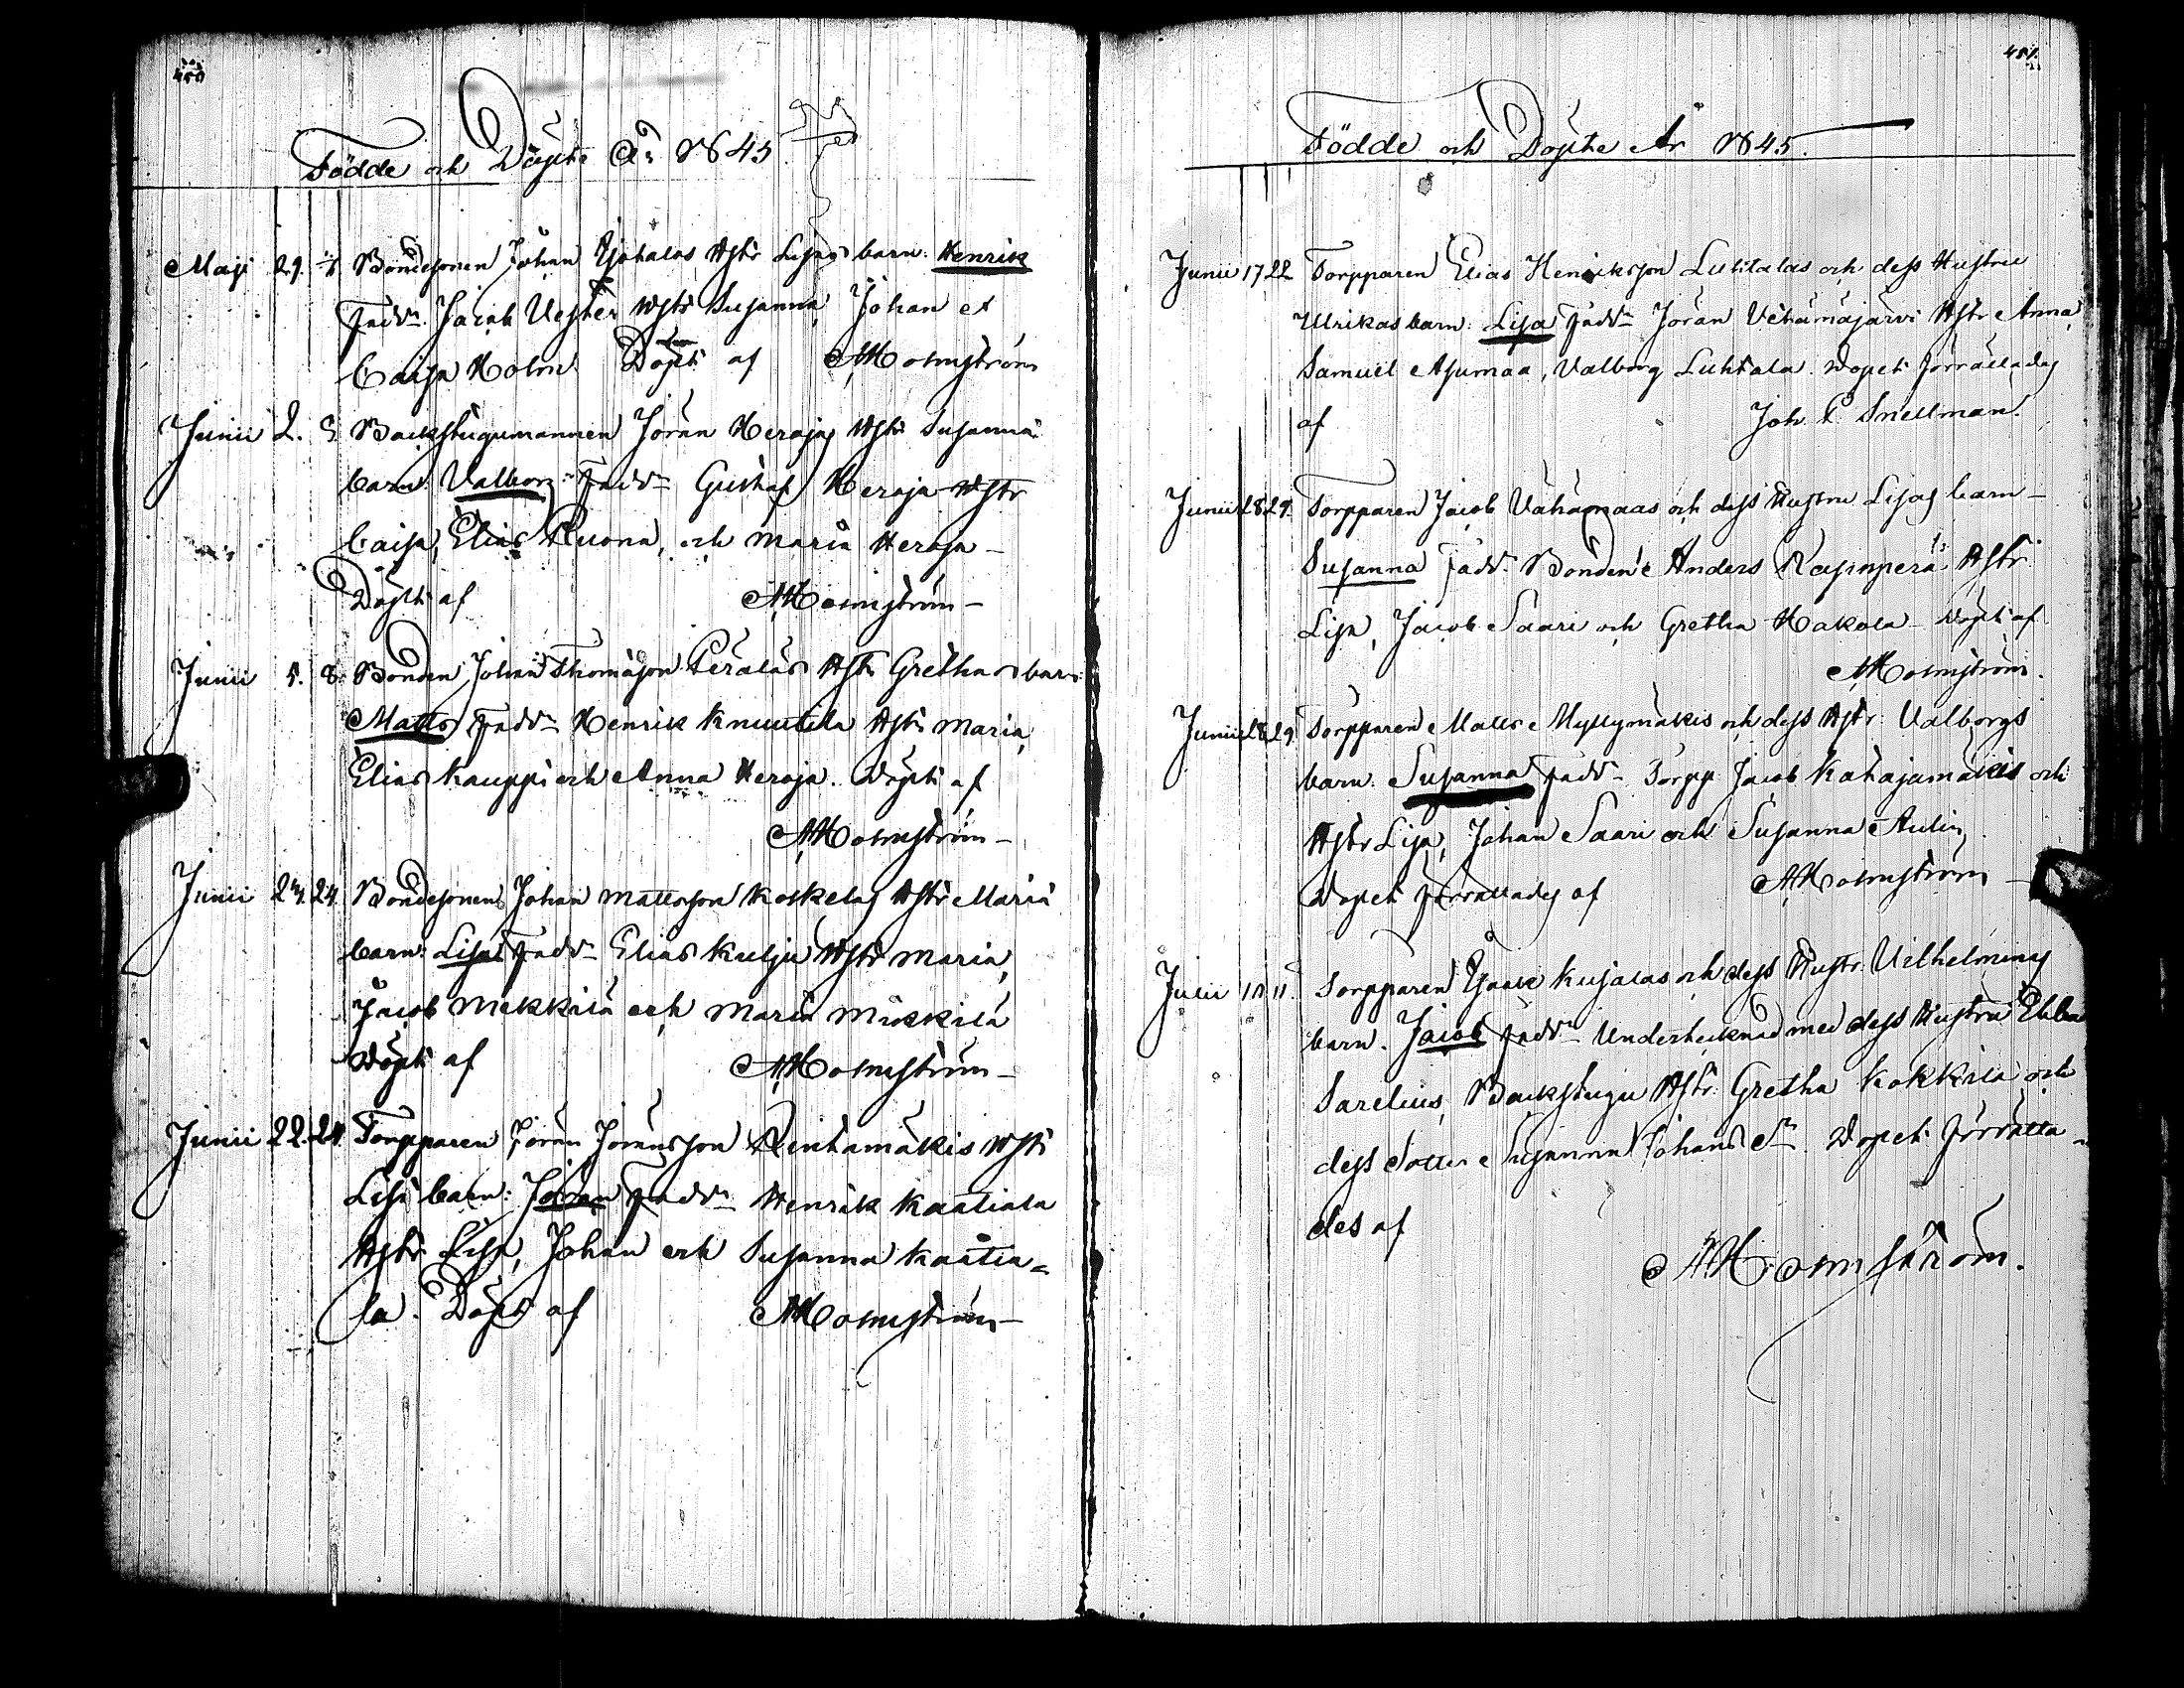 450
Födde och Döpte År 1845
Maji 29. 1/6 Bondesonen Johan Yjohalas Hstr Lisas barn: Henrik
Fadd:r Jacob Vester Hstr Susanna, Johan et
Caisa Holm. Döpt af AHolmström
Junii 2. 3. Backstugumannen Jöran Herajas Hstr Susannä
barn: Valborg Fadd:r Gustaf Heraja Hstr
Caisa, Elias Ruona, och Maria Heraja –
Döpt af AHolmström –
Junii 5. 8. Bonden Johan Thomasson Peralas Hstr Grethas barn:
Matts Fadd:r Henrik Knuutila Hstr Maria,
Elias Kauppi och Anna Heraja. Döpt af
AHolmström –
Junii 24. Bondesonens Johan Mattsson Koskelas Hstr Maria
barn: Lisa Fadd:r Elias Kulju Hstr Maria,
Jacob Mikkilä och Maria Mikkilä
Döpt af AHolmström –
Junii 22. 24. Torpparen Jöran Jöransson Rintamäkis Hstr
Lisa barn: Jöran Fadd:r Henrik Kaatiala
Hstr Lisa, Johan och Susanna Kaatia=
la. Döpt af AHolmström –
451.
Födde och Döpte År 1845.
Junii 17 22 Torpparen Elias Henriksson Luhtalas och dess Hustru
Ulrikas barn: Lisa Fadd:r Jöran Vehämäjärvi Hstr Anna,
Samuel Asumaa, Valborg Luhtala. Dopet förrättades
af Joh. Snellman.
Junii 28 29. Torpparen Jacob Vähämaas och dess Hustru Lisas barn –
Susanna Fadd:r Bonden Anders Hstr
Lisa, Jacob Saari och Gretha Hakola – Döpt af
AHolmström.
Junii 28 29 Torpparen Matts Myllymäkis och dess Hstr: Valborgs
barn: Susanna Fadd:r Torpp: Jacob Katajamäkis och
Hstr Lisa, Johan Saari och Susanna Aulin,
Dopet förrättades af AHolmström –
Julii 10 11. Torpparen Isaac Kujalas och dess Hustr: Vilhelminas
barn. Jacob Fadd:r Undertecknad med dess Hustru Ebba
Sarelius, Backstugu Hstr: Gretha Kokkila och
dess dotter Susanna Johans Dr. Dopet förrätta=
des af
AHolmström.